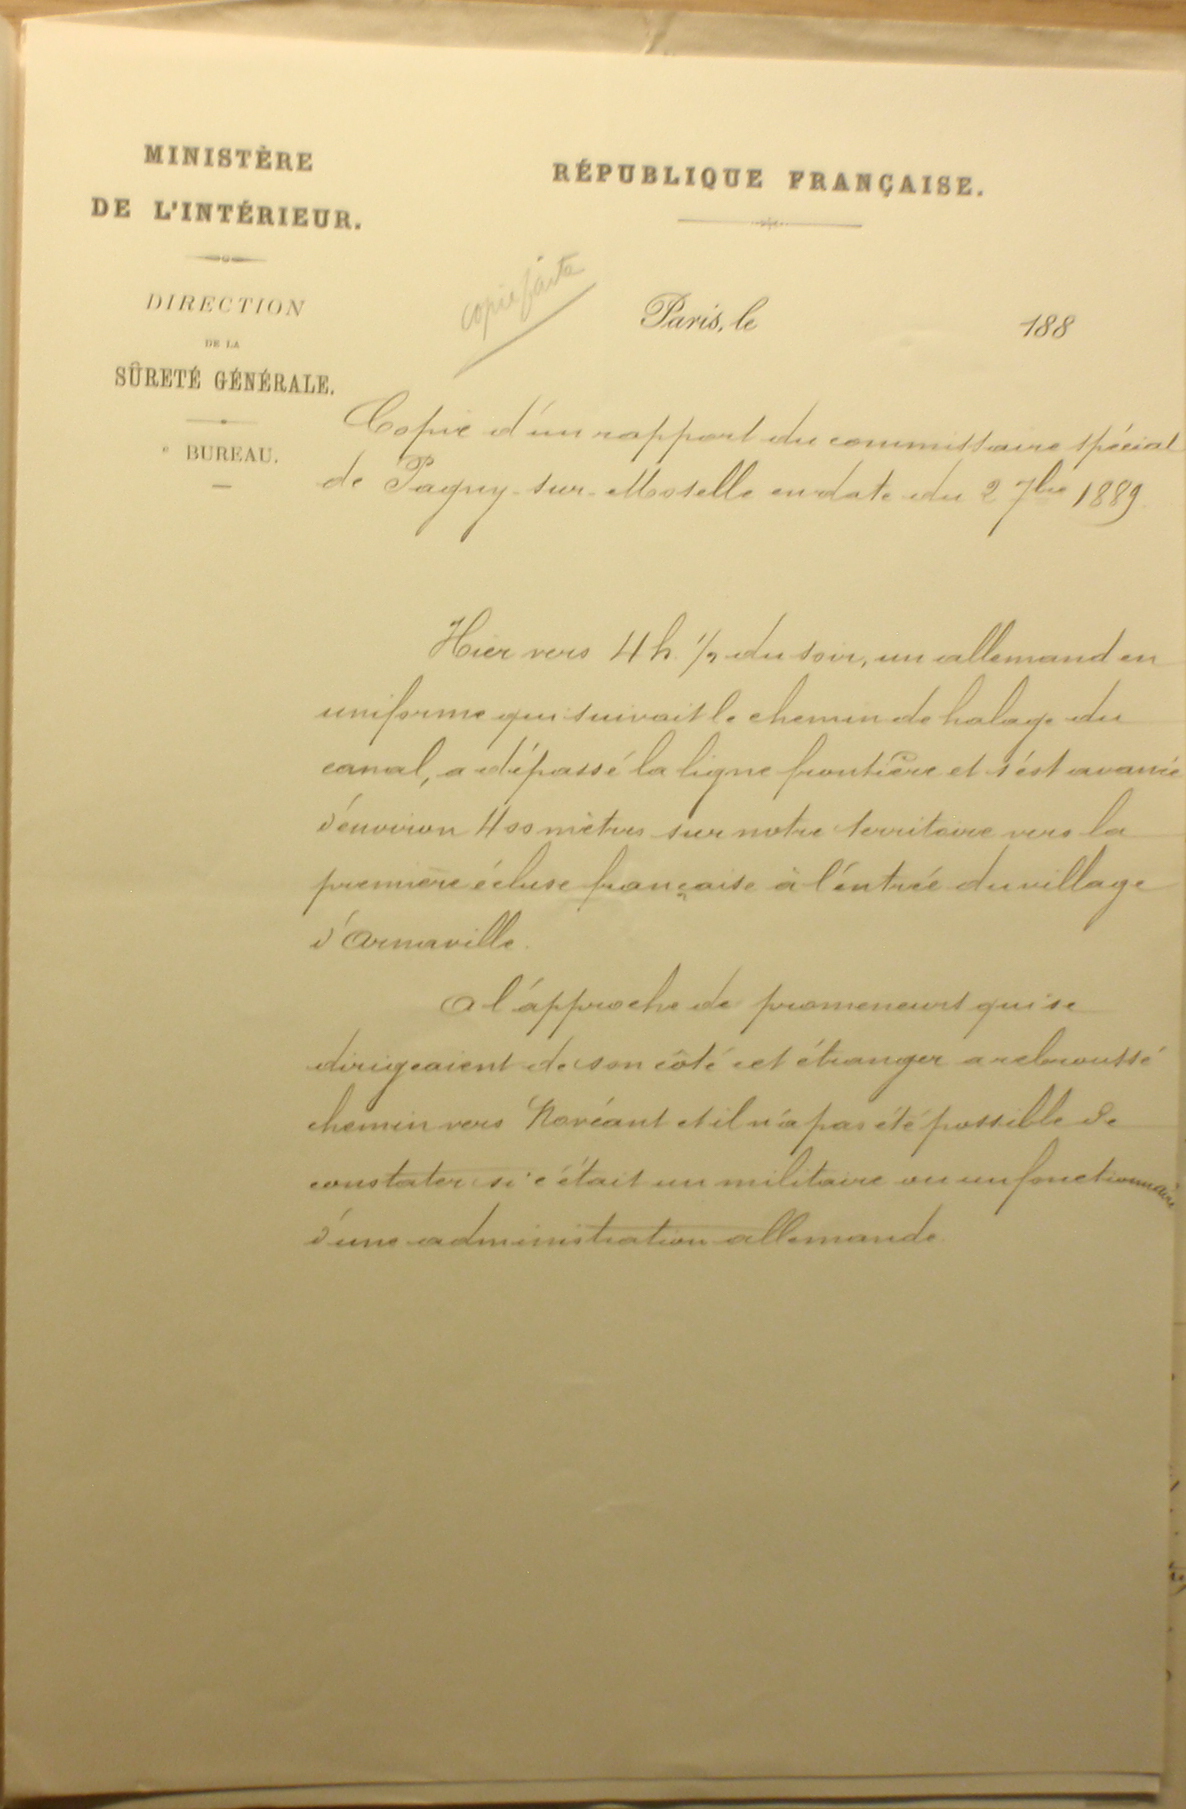 MINISTÈRE
DE L'INTÉRIEUR.
DIRECTION
DE LA
SÛRETÉ GÉNÉRALE.
e BUREAU.
RÉPUBLIQUE FRANÇAISE.
copie faite
Paris, le 188
Copie d'un rapport du commissaire spécial
de Pagny-sur-Moselle en date du 2 7bre 1889.
Hier vers 4 h. 1/2 du soir, un allemand en
uniforme qui suivait le chemin de halage du
canal, a dépassé la ligne frontière et s'est avancé
d'environ 400 mètres sur notre territoire vers la
première écluse française à l'entrée du village
d'Arnaville.
A l'approche de promeneurs qui se
dirigeaient de son côté cet étranger a rebroussé
chemin vers Novéant et il n'a pas été possible de
constater si c'était un militaire ou un fonctionnaire
d'une administration allemande.